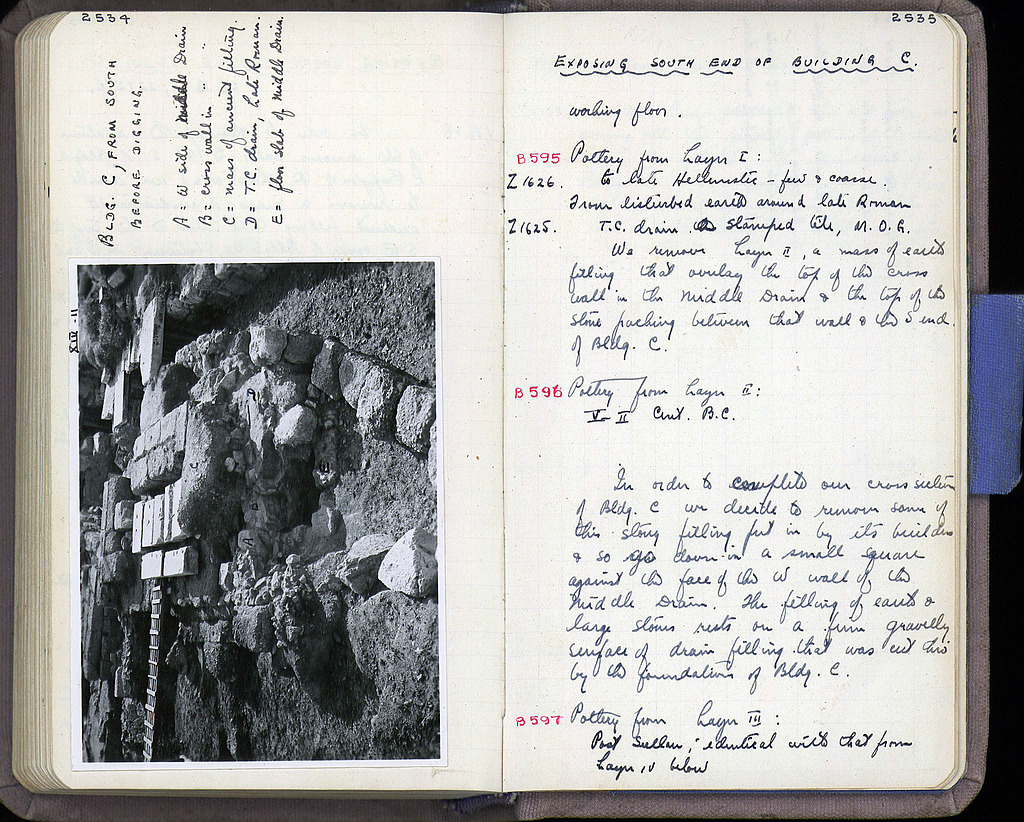 2534
BLDG. C, FROM SOUTH
BEFORE DIGGING.
A = W side of Middle Drain
B = cross wall in " "
C = mass of ancient filling.
D = T.C. drain, Late Roman.
E = floor slab of Middle Drain.
XIII-11
2535
EXPOSING SOUTH END OF BUILDING C.
working floor.
B595 Pottery from Layer I:
Z1626. to late Hellenistic - few & coarse.
From disturbed earth around late Roman
Z1625. T.C. drain. stamped tile, M.O.G.
We remove Layer II, a mass of earth
filling that overlay the top of the cross
wall in the Middle Drain & the top of the
stone packing between that wall & the S end
of Bldg. C.
B596 Pottery from Layer II:
V-II Cent. B.C.
In order to complete our cross section
of Bldg. C we decide to remove some of
this stony filling put in by its builders
& so go down in a small square
against the face of the W wall of the
Middle Drain. The filling of earth &
large stones rests on a firm gravelly
surface of drain filling that was cut thro
by the foundations of Bldg. C.
B597 Pottery from Layer III:
Post Sullan; identical with that from
Layer IV below